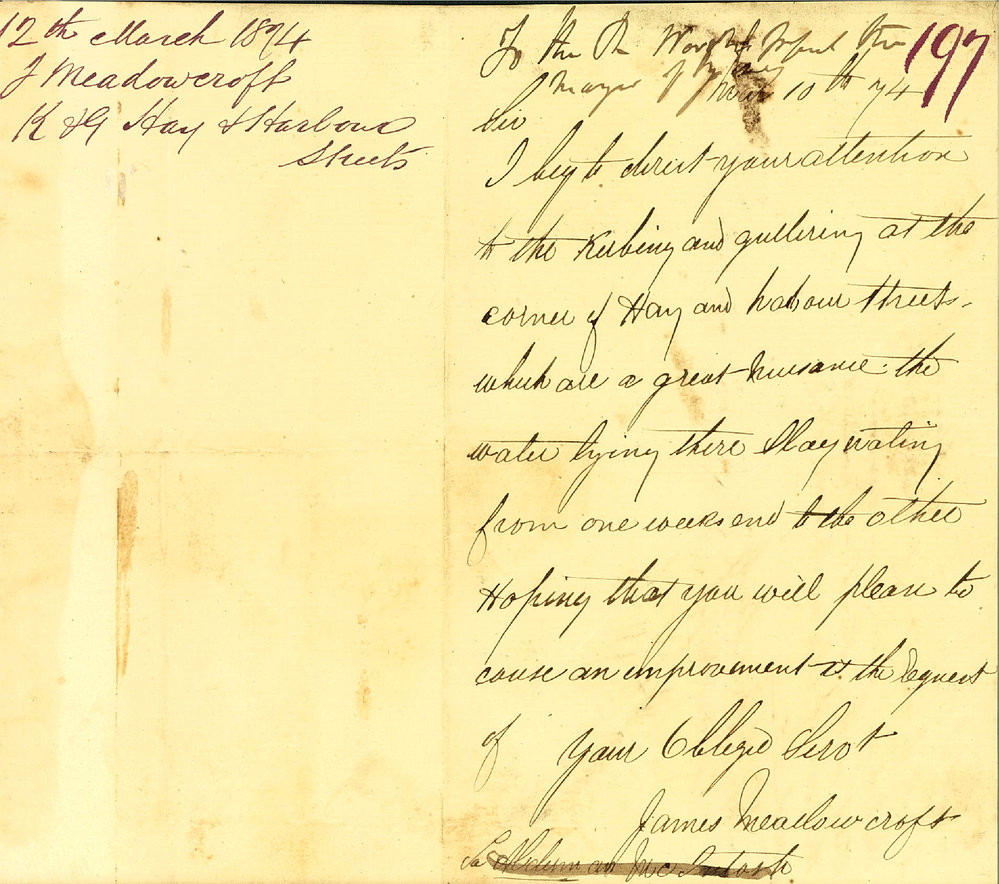 12th March 1874
J Meadowcroft
K & G Hay & Harbour
Streets
197
To the Rt Worshipful the
Mayor of Sydney
March 10th 74
Sir
I beg to direct your attention
to the Kerbing and guttering at the
corner of Hay and habour streets.
which are a great Nuisance the
water lying there Stagnating
from one weeks end to the other
Hoping that you will please to
cause an improvement at the request
of Your Obliged Servt
James Meadowcroft
To Alderman McIntosh